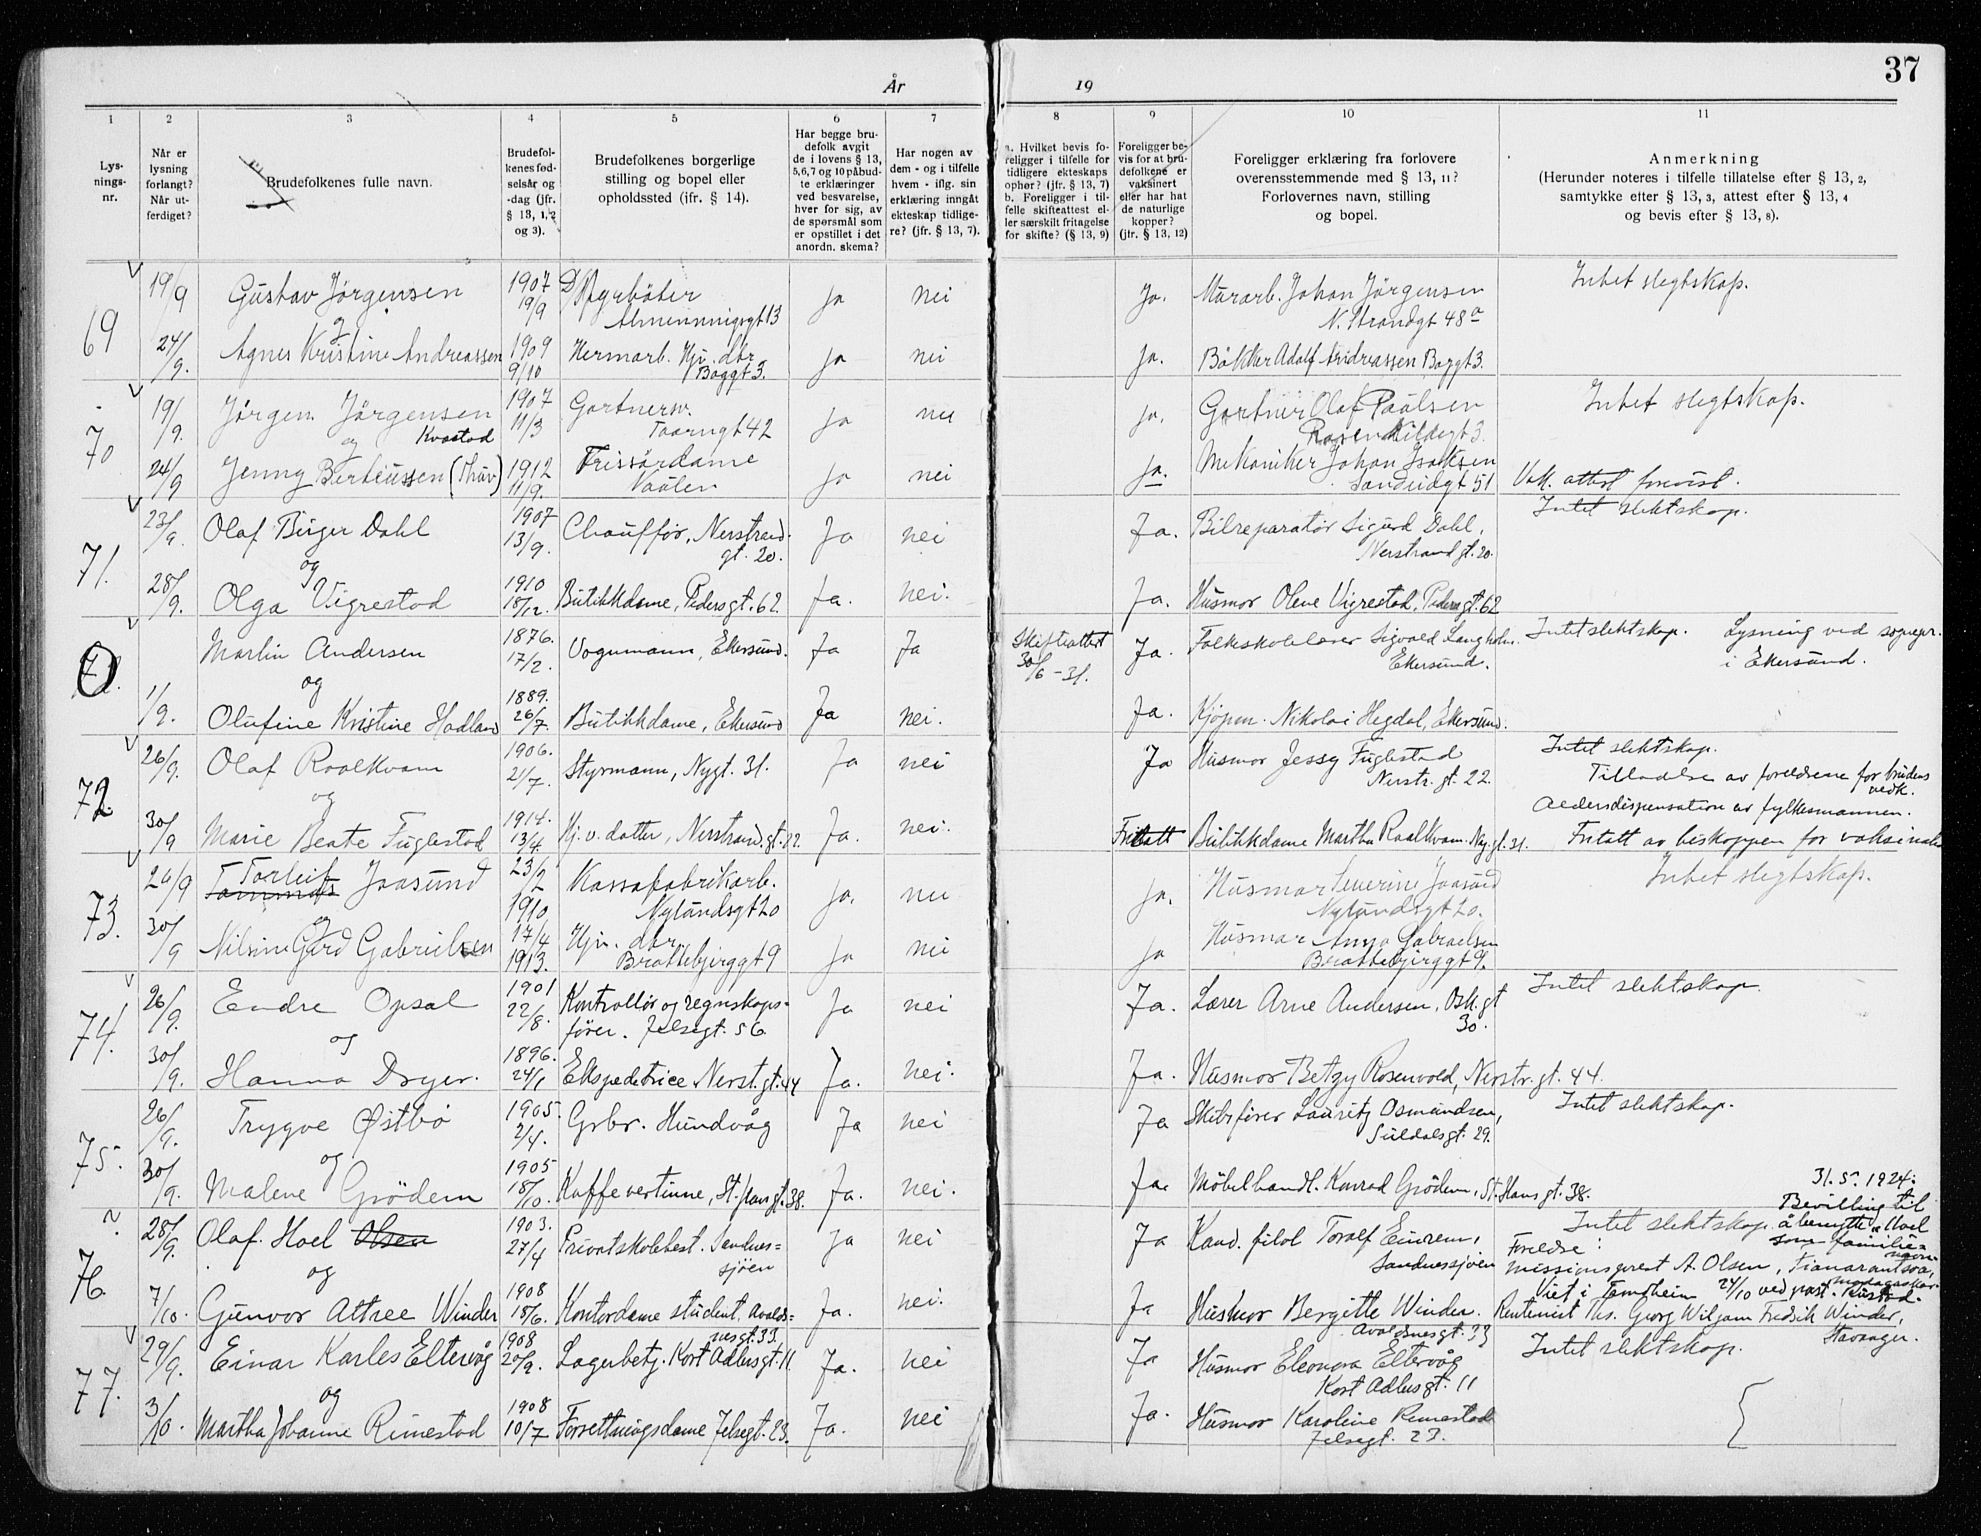 37
År
19
1 2 3 4 5 6 7 8 9 10 11
Lys-
nings-
nr.
Når er
lysning
forlangt?
Når ut-
ferdiget?
Brudefolkenes fulle navn.
Brudefol-
kenes fød-
selsår og
-dag (jfr.
§ 13, 1, 2
og 3).
Brudefolkenes borgerlige
stilling og bopel eller
opholdssted (jfr. § 14).
Har begge bru-
defolk avgit
de i lovens § 13,
5,6,7 og 10 påbud-
te erklæringer
ved besvarelse,
hver for sig, av
de spørsmål som
er opstillet i det
anordn. skema?
Har nogen av
dem - og i tilfelle
hvem - iflg. sin
erklæring inngåt
ekteskap tidlige-
re? (jfr. § 13, 7).
a. Hvilket bevis fo-
religger i tilfelle for
tidligere ekteskaps
ophør? (jfr. § 13, 7)
b. Foreligger i til-
felle skifteattest el-
ler særskilt fritagelse
for skifte? (§ 13, 9)
Foreligger be-
vis for at bru-
defolkene er
vaksinert
eller har hat
de naturlige
kopper?
(jfr. § 13, 12)
Foreligger erklæring fra forlovere
overensstemmende med § 13, 11?
Forlovernes navn, stilling
og bopel.
Anmerkning
(Herunder noteres i tilfelle tillatelse efter § 13, 2,
samtykke efter § 13, 3, attest efter § 13, 4
og bevis efter § 13, 8).
69
19/9 Gustav Jörgensen 1907 19/9 Almenningsgt 13 ja nei ja. Murarb. Johan Jörgensen
N. Strandgt 48a
Intet slegtskap.
og
24/9. Agnes Kristine Andreassen 1909 9/10 Hermarb. Hjv. dtr. Baggt 3. ja nei ja. Adolf Andreassen Baggt 3.
70
19/9. Jörgen Jörgensen 1907 11/3 Gartnersv. Taarngt 42 ja nei ja. Gartner Olaf Paulsen
Rosenkildegt 3.
Intet slegtskap.
og Kvastad
24/9 Jenny Berteussen (Thuv) 1912 11/9. Frissördame Vaalen ja nei ja. Mekaniker Johan Isaksen
Sandeidgt 51
Vak. attest forevist.
71.
23/9 Olaf Birger Dahl 1907 13/9. Chaufför, Nerstrand-
gt. 20. Ja nei Ja. Bilreparatör Sigurd Dahl,
Nerstrandgt. 20.
Intet slektskap.
og
28/9. Olga Vigrestad 1910 18/12. Butikkdame, Pedersgt. 62. Ja. nei. Ja. Husmor Olene Vigrestad, Pedersgt. 62
0
Martin Andersen 1876. 17/2. Vognmann, Ekersund. Ja Ja Skifteattest
30/6 - 31. Ja. Folkskolelærer Sigvald Langholm.
Ekersund.
Intet slektskap. Lysning ved sognepr.
i Ekersund.
og
1/9. Olufine Kristine Hadland 1889. 26/7. Butikkdame, Ekersund Ja nei. Ja. Kjöpm. Nikolai Hegdal, Ekersund.
72
26/9. Olaf Raalkvam 1906. 21/7. Styrmann, Nygt. 31. Ja nei Ja Husmor Jessy Fuglestad
Nerstr. gt. 22.
Intet slektskap.
Tilladelse av foreldrene for brudens
vedk.
Aldersdispensation av fylkesmannen.
og
30/9 Marie Beate Fuglestad 1914. 13/4 Hj. v. datter, Nerstrand.gt. 22. Ja. nei. Fritatt Butikkdame Martha Raalkvam. Ny.gt. 31. Fritatt av biskoppen for vaksination
73.
26/9 Torleif Jaasund 23/2 1910 Kassafabrikarb.
Nylundsgt 20 ja. nei ja. Husmor Severine Jaasund
Nylundsgt 20.
Intet slegtskap.
og
30/9 Nilsine Gard Gabrielsen 17/4 1913. Hjv. dtr.
Brattebjerggt 9 ja nei ja Husmor Anna Gabrielsen
Brattebjerggt 9.
74.
26/9. Endre Opsal 1901 22/8. Kontrollör og regnskaps-
förer. Jelsegt. 56 Ja nei Ja. Lærer Arne Andersen, Osk.gt
30.
Intet slektskap.
og
30/9. Hanna Dryer. 1896. 24/1 Ekspeditrice Nerst.gt. 44 Ja. nei. Ja. Husmor Betzy Rosenvold, Nerstr.gt. 44.
75.
26/9. Trygve Østbö 1905. 2/4. Grbr. Hundvåg Ja nei Ja Skibsförer Lauritz Osmundsen,
Suldalsgt. 29.
Intet slektskap.
og
30/9. Malene Grödem 1905 18/10. Kaffevertinne, St. Hansgt. 38. Ja. nei. Ja. Möbelhandl. Konrad Grödem, St. Hansgt. 38.
76.
28/9. Olaf. Hoel Olsen 1903. 27/4 Privatskolebest. Sandnes-
sjöen Ja nei Ja Kand. filol Toralf Einrem,
Sandnessjöen
31. 5. 1924.
Bevilling til
Intet slektskap. å benytte Hoel
som familie-
navn.
Foreldre:
missionsprest A. Olsen, Fianarantsoa,
Madagaskar.
Viet i Trondheim 24/10 ved prest
og
7/10. Gunvor Attree Winder 1908 18/6. Kontordame student. Avalds-
nesgt. 33. Ja. nei. Ja Husmor Bergitte Winder.
Avaldsnesgt. 33
Rentenist Ths. Georg Wiljam Fredrik Winder,
Stavanger.
77.
29/9. Einar Karles Eltervåg 1908 20/9. Lagerbetj. Kort Adlersgt. 11 Ja. nei Ja Husmor Eleonora Eltervåg
Kort Adlersgt. 11
Intet slektskap.
og
3/10. Martha Johanne Rimestad 1908 10/7 Forretningsdame Jelsegt. 23. Ja. nei Ja. Husmor Karoline Rimestad
Jelsegt. 23.